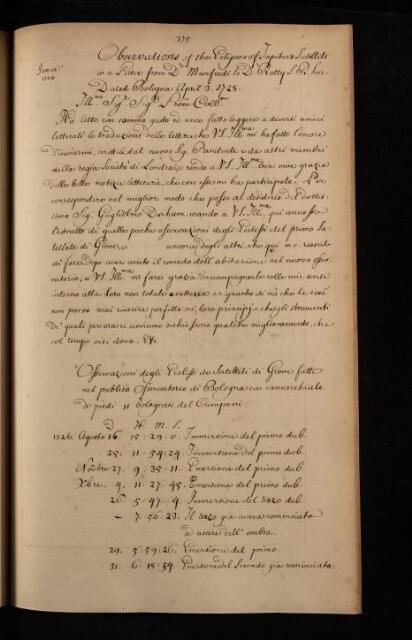 375
Observations of the Eclipses of Jupiter's Satellits
in a Letter from Dr Manfredi to Dr Rutty S. R. Secr.
Dated Bologna April 3. 1728.
Ill.mo Sig.r Sig.r Prone Coll.mo
Ho letto con sommo gusto ed anco fatto leggere a diversi amici
letterati la traduzione delle lettere che VS. Ill.ma mi ha fatto l'onore
d'inviarmi, scritte dal nuovo Sig. Presidente e da altri membri
della regia Società di Londra; e rendo a VS. Ill.ma ben vive grazie
delle belle notizie letterarie, che con esse mi ha participate. Per
corrispondere nel miglior modo che posso al desiderio del dottis-
simo Sig. Guglielmo Derham, mando a VS. Ill.ma qui annesso
l'estratto di quelle poche osservazioni degli Eclissi del primo Sa-
tellite di Giove, e ancora degli altri, che qui mi è riuscito
di fare dopo aver avuto il comodo dell'abitazione nel nuovo osser-
vatorio, e VS. Ill.ma mi farà grazia d'accompagnarle colle mie scuse
intorno alla loro non totale esattezza a riguardo di ciò che le cose
non porno mai riuscire perfette ne' loro principj e che gli strumenti
De' quali per ora ci serviamo richiedono qualche miglioramento, che
col tempo vi si dovrà. &c.
Osservazioni degli Eclissi de Satelliti di Giove fatte
nel publico Osservatorio di Bologna con cannocchiale
di piedi 11 bolognesi del Campani.
D. H. M. S.
1726. Agosto 16. 15. 29. 0. Immersione del primo dub.
25. 11. 54. 24. Immersione del primo dub.
Novbre 27. 9. 35. 11. Emersione del primo dub.
Xbre. 4. 11. 27. 45. Emersione del primo dub.
26. 5. 47. 4. Immersione del terzo dub.
— 7. 56. 23. Il terzo già aveva cominciato
a uscire dell'ombra.
29. 5. 59. 26. Emersione del primo.
31. 6. 18. 54. Emersione del Secondo già cominciata.